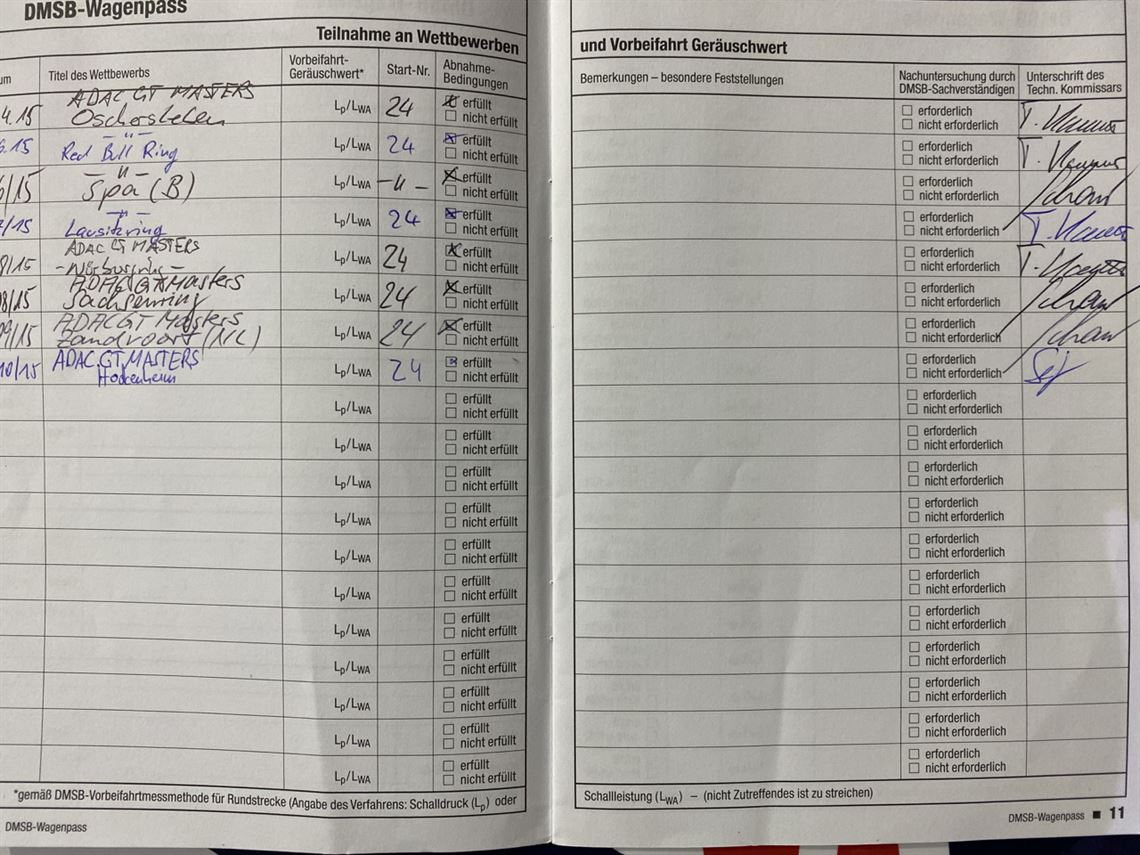 DMSB-Wagenpass
Teilnahme an Wettbewerben
um
Titel des Wettbewerbs
Vorbeifahrt-
Geräuschwert*
Start-Nr.
Abnahme-
Bedingungen
4.15
ADAC GT MASTERS
Oschersleben
Lp/LWA
24
erfüllt
nicht erfüllt
5.15
– " –
Red Bull Ring
Lp/LWA
24
erfüllt
nicht erfüllt
6/15
– " –
Spa (B)
Lp/LWA
– " –
erfüllt
nicht erfüllt
7/15
– " –
Lausitzring
Lp/LWA
24
erfüllt
nicht erfüllt
8/15
ADAC GT MASTERS
- Nürburgring -
Lp/LWA
24
erfüllt
nicht erfüllt
08/15
ADAC GT Masters
Sachsenring
Lp/LWA
24
erfüllt
nicht erfüllt
09/15
ADAC GT Masters
Zandvoort (NL)
Lp/LWA
24
erfüllt
nicht erfüllt
10/15
ADAC GT MASTERS
Hockenheim
Lp/LWA
24
erfüllt
nicht erfüllt
Lp/LWA
erfüllt
nicht erfüllt
Lp/LWA
erfüllt
nicht erfüllt
Lp/LWA
erfüllt
nicht erfüllt
Lp/LWA
erfüllt
nicht erfüllt
Lp/LWA
erfüllt
nicht erfüllt
Lp/LWA
erfüllt
nicht erfüllt
Lp/LWA
erfüllt
nicht erfüllt
Lp/LWA
erfüllt
nicht erfüllt
Lp/LWA
erfüllt
nicht erfüllt
Lp/LWA
erfüllt
nicht erfüllt
Lp/LWA
erfüllt
nicht erfüllt
*gemäß DMSB-Vorbeifahrtmessmethode für Rundstrecke (Angabe des Verfahrens: Schalldruck (Lp) oder
DMSB-Wagenpass
und Vorbeifahrt Geräuschwert
Bemerkungen – besondere Feststellungen
Nachuntersuchung durch
DMSB-Sachverständigen
Unterschrift des
Techn. Kommissars
erforderlich
nicht erforderlich
erforderlich
nicht erforderlich
erforderlich
nicht erforderlich
erforderlich
nicht erforderlich
erforderlich
nicht erforderlich
erforderlich
nicht erforderlich
erforderlich
nicht erforderlich
erforderlich
nicht erforderlich
erforderlich
nicht erforderlich
erforderlich
nicht erforderlich
erforderlich
nicht erforderlich
erforderlich
nicht erforderlich
erforderlich
nicht erforderlich
erforderlich
nicht erforderlich
erforderlich
nicht erforderlich
erforderlich
nicht erforderlich
erforderlich
nicht erforderlich
erforderlich
nicht erforderlich
erforderlich
nicht erforderlich
Schallleistung (LWA) – (nicht Zutreffendes ist zu streichen)
DMSB-Wagenpass ■ 11